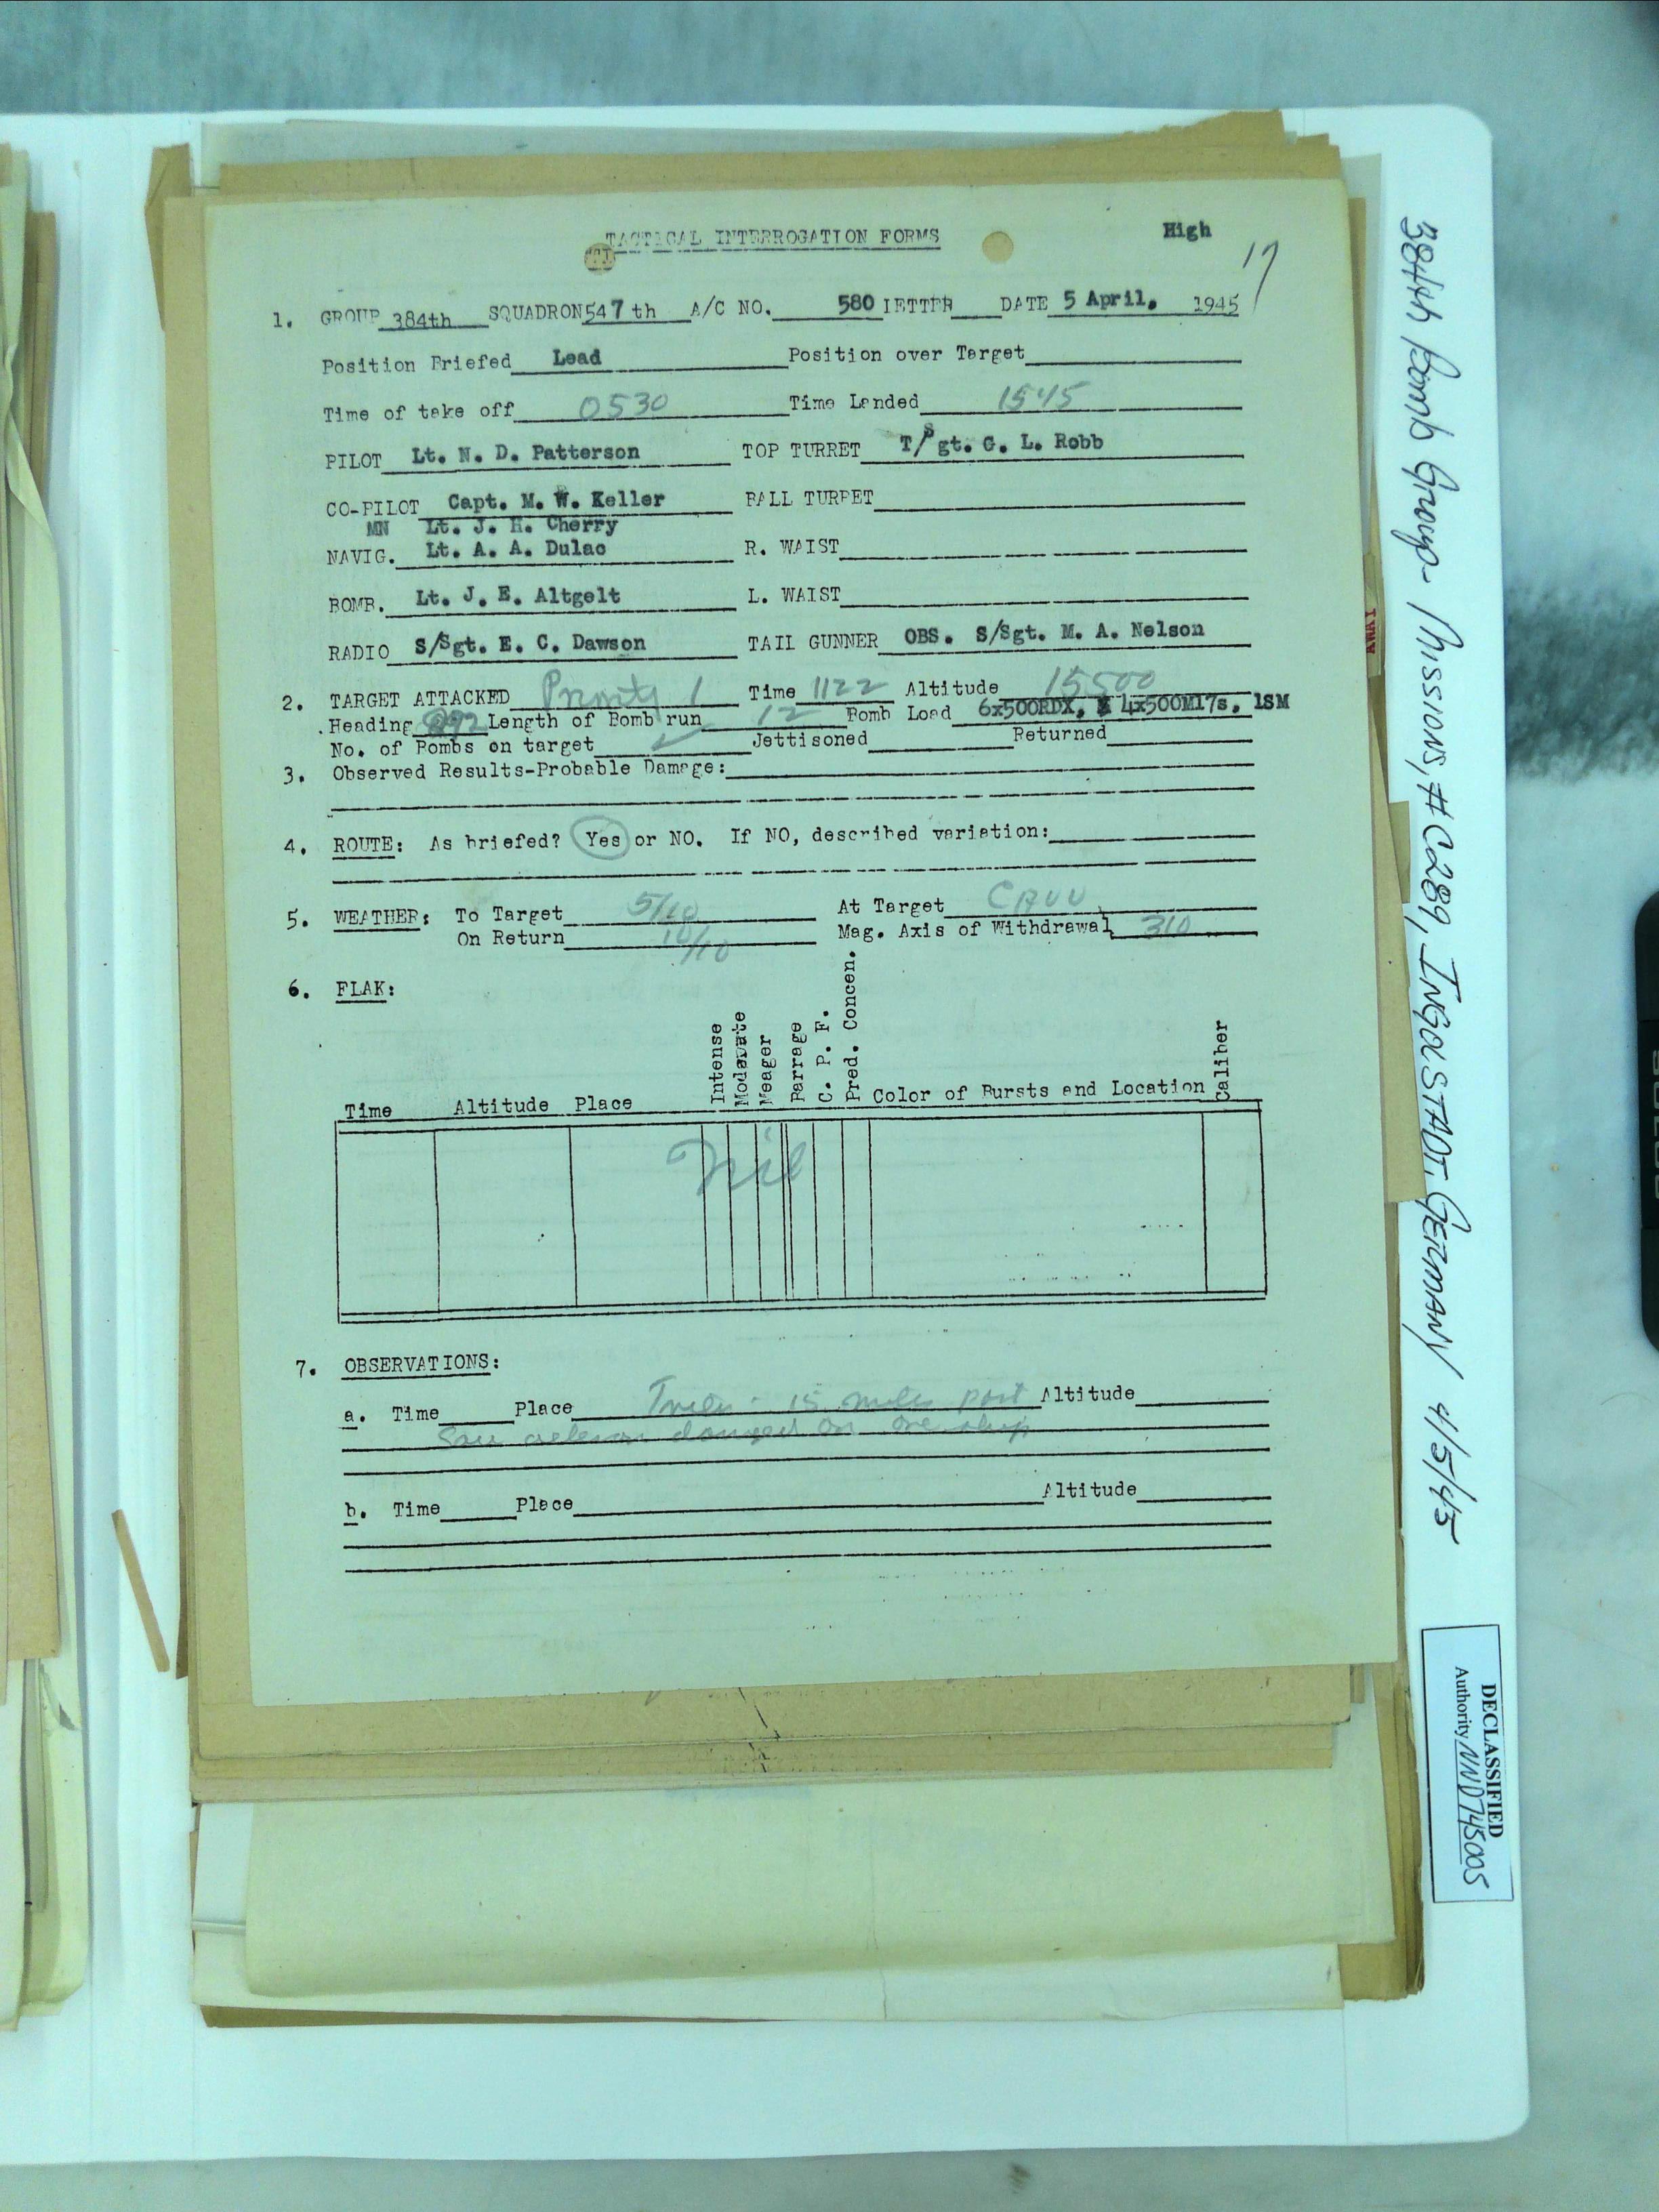 TACTICAL INTERROGATION FORMS High
17
1. GROUP 384th SQUADRON 547th A/C NO. 580 LETTER DATE 5 April, 1945
Position Briefed Lead Position over Target
Time of take off 0530 Time Landed 1545
PILOT Lt. N. D. Patterson TOP TURRET T/Sgt. G. L. Robb
CO-PILOT Capt. M. W. Keller BALL TURRET
MN Lt. J. H. Cherry
NAVIG. Lt. A. A. Dulac R. WAIST
BOMB. Lt. J. E. Altgelt L. WAIST
RADIO S/Sgt. E. C. Dawson TAIL GUNNER OBS. S/Sgt. M. A. Nelson
2. TARGET ATTACKED Priority 1 Time 1122 Altitude 15500
Heading 292 Length of Bomb run 12 Bomb Load 6x500RDX, 4x500M17s, 1SM
No. of Bombs on target ✓ Jettisoned Returned
3. Observed Results-Probable Damage:
4. ROUTE: As briefed? Yes or NO. If NO, described variation:
5. WEATHER: To Target 5/10 At Target CAVU
On Return 10/10 Mag. Axis of Withdrawal 310
6. FLAK:
Time Altitude Place Intense Moderate Meager Barrage C. P. F. Pred. Concen. Color of Bursts and Location Caliber
Nil
7. OBSERVATIONS:
a. Time Place Trier - 15 miles past Altitude
Saw damaged on one ship
b. Time Place Altitude
384th Bomb Group- Missions, # C289, INGOLSTADT, GERMANY 4/5/45
AWAY
DECLASSIFIED
Authority NND745005